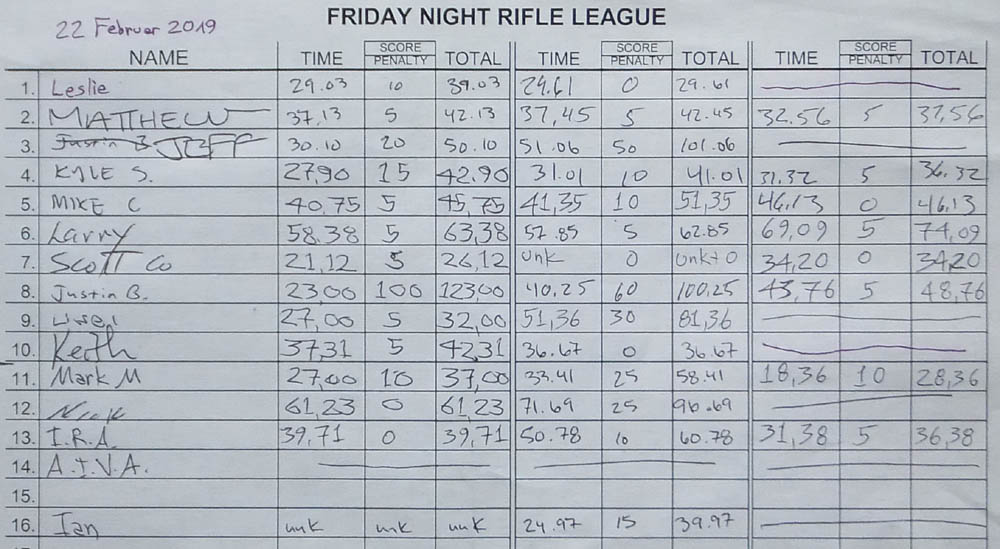 FRIDAY NIGHT RIFLE LEAGUE
22 Februar 2019
NAME TIME SCORE PENALTY TOTAL TIME SCORE PENALTY TOTAL TIME SCORE PENALTY TOTAL
1. Leslie 29.03 10 39.03 29.61 0 29.61
2. MATTHEW 37,13 5 42.13 37,45 5 42.45 32.56 5 37,56
3. Justin B JEFF 30.10 20 50.10 51.06 50 101.06
4. KYLE S. 27,90 15 42.90 31.01 10 41.01 31.32 5 36.32
5. MIKE C 40,75 5 45,75 41,35 10 51,35 46,13 0 46,13
6. Larry 58.38 5 63,38 57.85 5 62.85 69,09 5 74,09
7. Scott Co 21,12 5 26,12 unk 0 unk+0 34,20 0 34,20
8. Justin B. 23,00 100 123,00 40.25 60 100.25 43,76 5 48,76
9. 27,00 5 32,00 51,36 30 81,36
10. Keith 37,31 5 42,31 36.67 0 36.67
11. Mark M 27,00 10 37,00 33.41 25 58.41 18,36 10 28,36
12. 61,23 0 61,23 71.69 25 96.69
13. I.R.A. 39,71 0 39,71 50.78 10 60.78 31,38 5 36,38
14. A.I.V.A.
15.
16. Ian unk unk unk 24.97 15 39.97